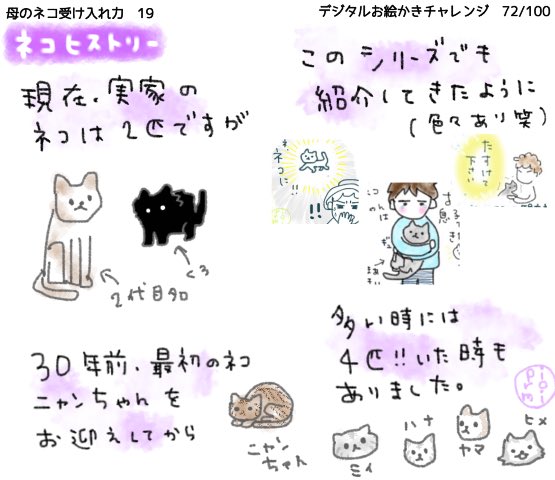 母のネコ受け入れ力 19
デジタルお絵かきチャレンジ 72/100
ネコヒストリー
現在、実家の
ネコは2匹ですが
2代目タロ
くろ
30年前、最初のネコ
ニャンちゃんを
お迎えしてから
ニャン
ちゃん
このシリーズでも
紹介してきたように
(色々あり笑)
ネコに!!
!!
たすけて
下さい
多い時には
4匹!!いた時も
ありました。
ミイ
ハナ
ヤマ
ヒメ